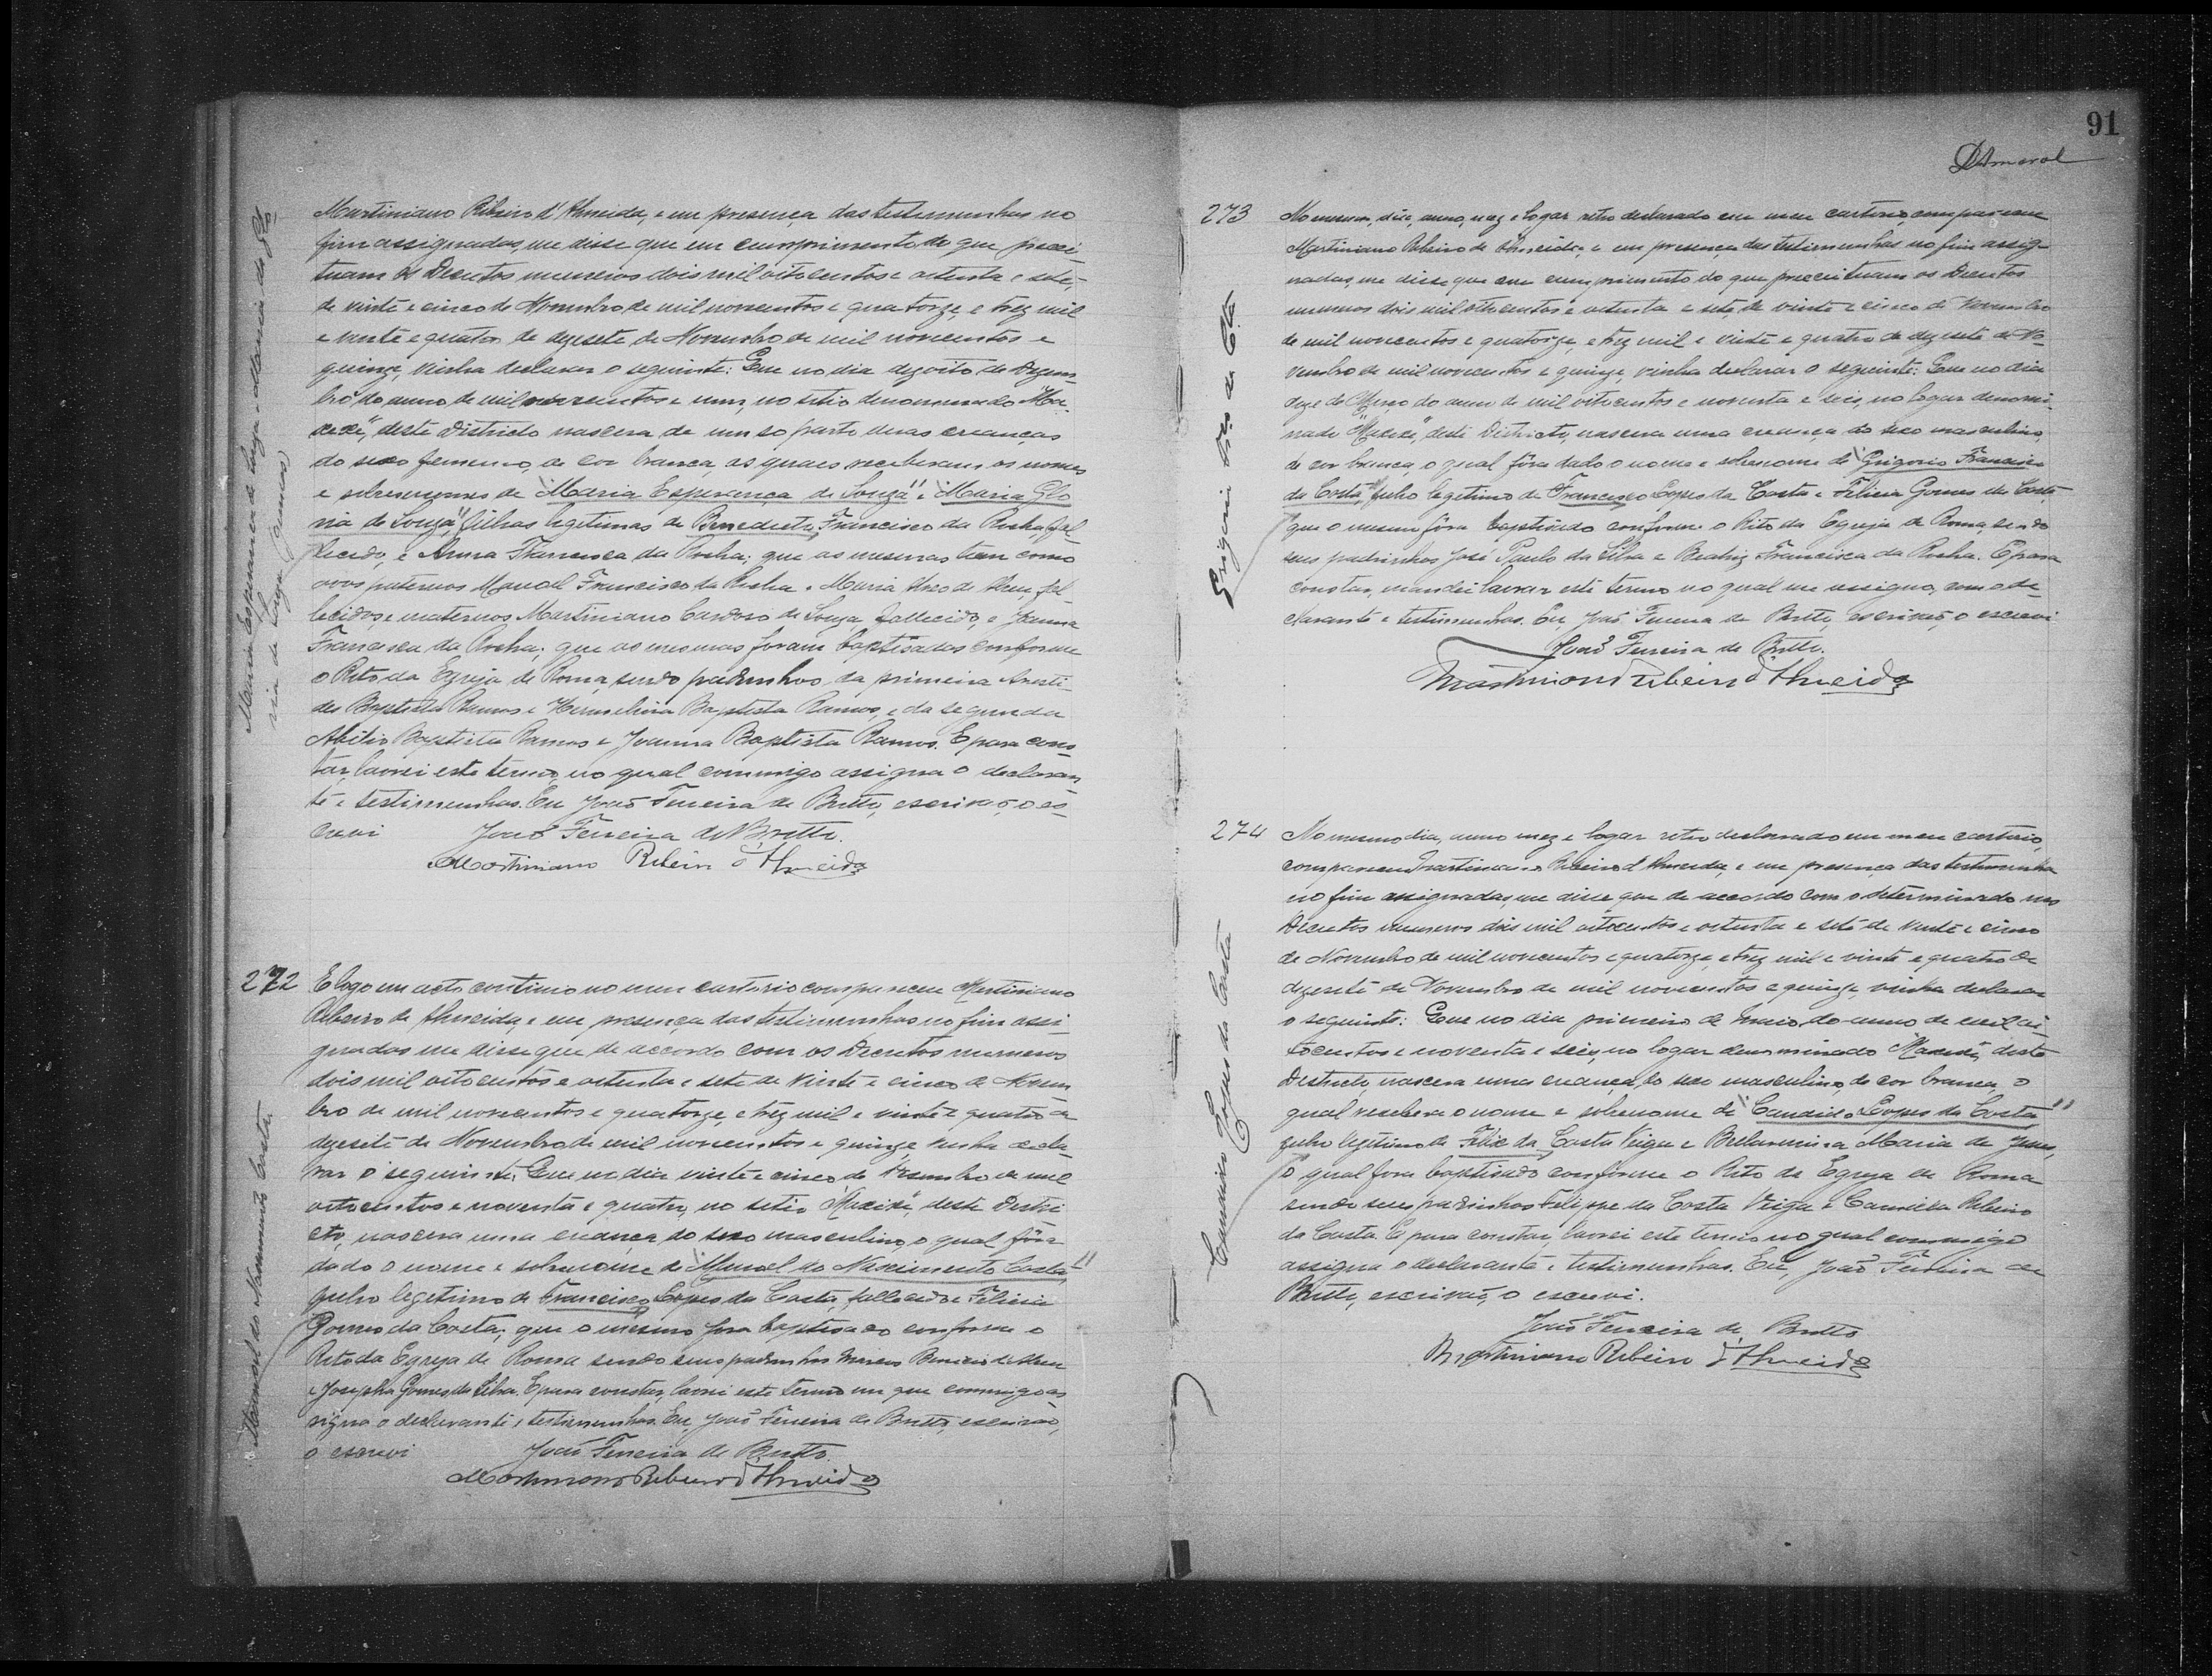 91
DAmaral
Maria Esperança de Souza e Maria da Glo
ria de Souza (gemeas)
Martiniano Ribeiro d'Almeida, e em presença das testemunhas no
fim assignadas, me disse que em cumprimento do que precei-
tuam os Decretos numeros dois mil oitocentos e oitenta e sete,
de vinte e cinco de Novembro de mil novecentos e quatorze, e trez mil
e vinte e quatro de dezesete de Novembro de mil novecentos e
quinze, vinha declarar o seguinte: Que no dia dezoito de Dezem-
bro do anno de mil novecentos e um, no sitio denominado "Ma-
xixi", deste Districto nascera de um só parto duas creanças
do sexo femenino, de cor branca, as quaes receberam os nomes
e sobrenomes de "Maria Esperança de Souza" e "Maria Glo
ria de Souza", filhas legitimas de Benedicto Francisco da Rocha, fal
lecido, e Anna Francisca da Rocha; que as mesmas tem como
avós paternos Manoel Francisco da Rocha e Maria de fal-
lecidos e maternos Martiniano Cardoso de Souza, fallecido, e Joanna
Francisca da Rocha; que as mesmas foram baptisadas conforme
o Rito da Egreja de Roma, sendo padrinhos da primeira Aristi-
des Baptista Ramos e Baptista Ramos, e da segunda
Abilio Baptista Ramos e Joanna Baptista Ramos. E para cons-
tar, lavrei este termo, no qual commigo assigna o declaran-
te e testemunhas. Eu João Ferreira de Britto, escrivão, o es-
crevi
João Ferreira de Britto.
Martiniano Ribeiro d'Almeida
Manoel do Nascimento Costa
272 E logo em acto continuo no meu cartorio compareceu Martiniano
Ribeiro de Almeida, e em presença das testemunhas no fim assi-
gnadas me disse que de accordo com os Decretos numeros
dois mil oitocentos e oitenta e sete de vinte e cinco de Novem
bro de mil novecentos e quatorze, e trez mil e vinte e quatro de
dezesete de Novembro de mil novecentos e quinze, vinha decla-
rar o seguinte: Que no dia vinte e cinco de Dezembro de mil
oitocentos e noventa e quatro, no sitio "Maxixi", deste Distri
cto, nascera uma creança do sexo masculino, o qual fôra
dado o nome e sobrenome de "Manoel do Nascimento Costa"
filho legitimo de Francisco Lopes da Costa, fallecido e Felicia
Gomes da Costa; que o mesmo fora baptisado conforme o
Rito da Egreja de Roma sendo seus padrinhos Marcos
e Josepha Gomes da Silva. E para constar, lavrei este termo em que commigo as-
signa o declarante e testemunhas. Eu, João Ferreira de Britto, escrivão,
o escrevi
João Ferreira de Britto.
Martiniano Ribeiro d'Almeida
273 No mesmo, dia, anno, mez e logar retro declarado em meu cartorio, compareceu
Martiniano Ribeiro de Almeida, e em presença das testemunhas no fim assig-
nadas, me disse que em cumprimento do que preceituam os Decretos
numeros dois mil oitocentos e oitenta e sete, de vinte e cinco de Novembro
de mil novecentos e quatorze, e trez mil e vinte e quatro de dezesete de No-
vembro de mil novecentos e quinze, vinha declarar o seguinte: Que no dia
doze de Março do anno de mil oitocentos e noventa e seis, no logar denomi-
nado "Maxixi", deste Districto, nascera uma creança do sexo masculino,
de cor branca, o qual fôra dado o nome e sobrenome de "Grigorio Francisco
da Costa", filho legitimo de Francisco Lopes da Costa e Felicia Gomes da Costa
que o mesmo fôra baptisado conforme o Rito da Egreja de Roma, sendo
seus padrinhos José Paulo da Silva e Beatriz Francisca da Rocha. E para
constar, mandei lavrar este termo no qual me assigno, com o de-
clarante e testemunhas. Eu João Ferreira de Britto, escrivão, o escrevi
João Ferreira de Britto.
Martiniano Ribeiro d'Almeida
Candido Lopes da Costa
274 No mesmo dia, anno mez e logar retro declarado em meu cartorio,
compareceu Martiniano Ribeiro d'Almeida, e em presença das testemunhas
no fim assignadas, me disse que de accordo com o determinado nos
Decretos numeros dois mil oitocentos e oitenta e sete de vinte e cinco
de Novembro de mil novecentos e quatorze, e trez mil e vinte e quatro de
dezesete de Novembro de mil novecentos e quinze, vinha declarar
o seguinte: Que no dia primeiro de Maio do anno de mil oi-
tocentos e noventa e seis, no logar denominado "Maxixi", deste
Districto, nascera uma creança, do sexo masculino, de cor branca, o
qual recebera o nome e sobrenome de "Candido Lopes da Costa"
filho legitimo de Felix da Costa Veiga e Maria de Jesus,
o qual fora baptisado conforme o Rito da Egreja de Roma
sendo seus padrinhos Felippe da Costa Veiga e Camilla Ribeiro
da Costa. E para constar, lavrei este termo no qual commigo
assigna o declarante e testemunhas. Eu, João Ferreira de
Britto, escrivão, o escrevi.
João Ferreira de Britto
Martiniano Ribeiro d'Almeida